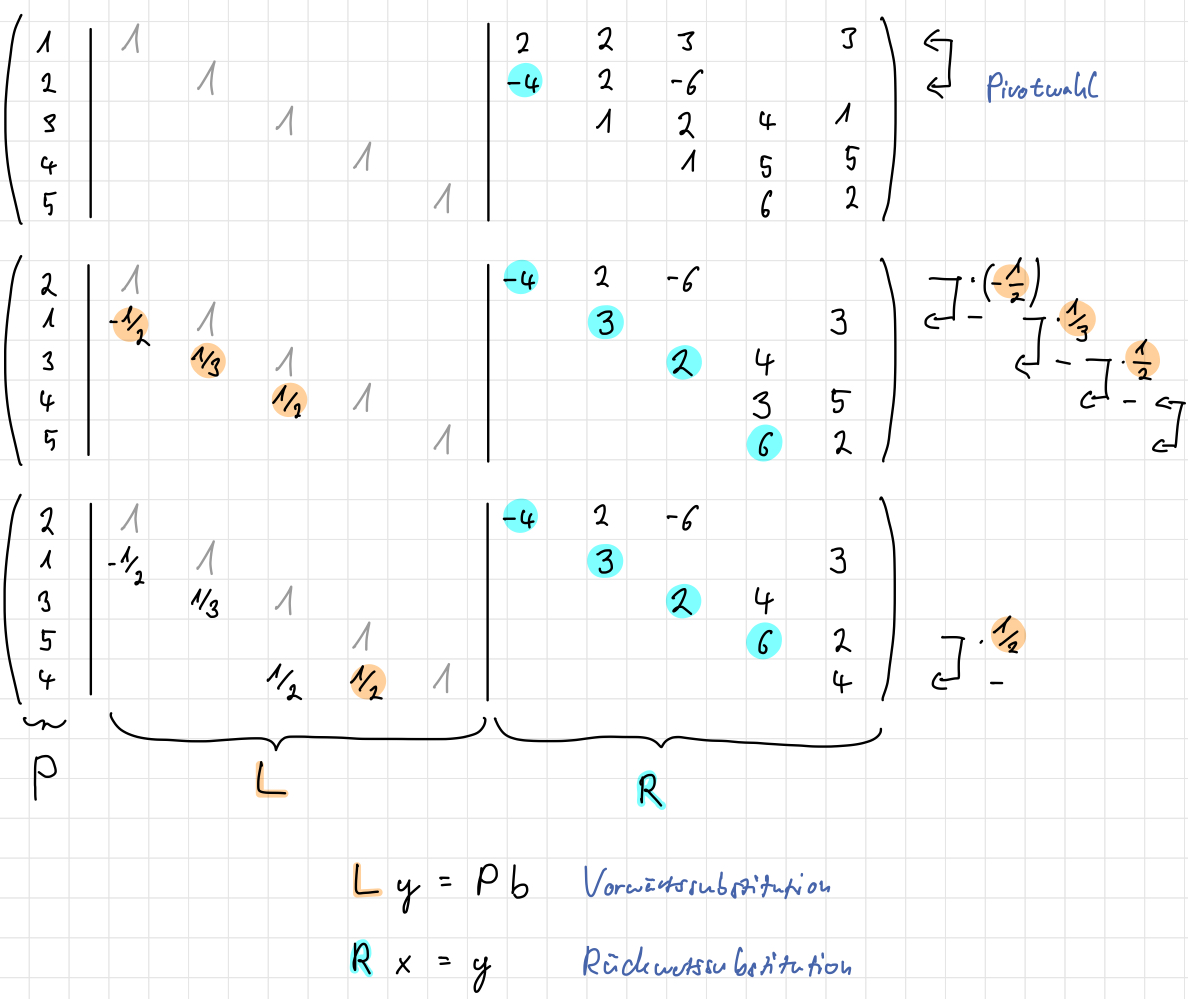 1 1 2 2 3 3
2 1 -4 2 -6 Pivotwahl
3 1 1 2 4 1
4 1 1 5 5
5 1 6 2
2 1 -4 2 -6 ·(-1/2)
1 -1/2 1 3 3 - ·1/3
3 1/3 1 2 4 - ·1/2
4 1/2 1 3 5 -
5 1 6 2
2 1 -4 2 -6
1 -1/2 1 3 3
3 1/3 1 2 4
5 1 6 2 ·1/2
4 1/2 1/2 1 4 -
P L R
L y = P b Vorwärtssubstitution
R x = y Rückwertssubstitution